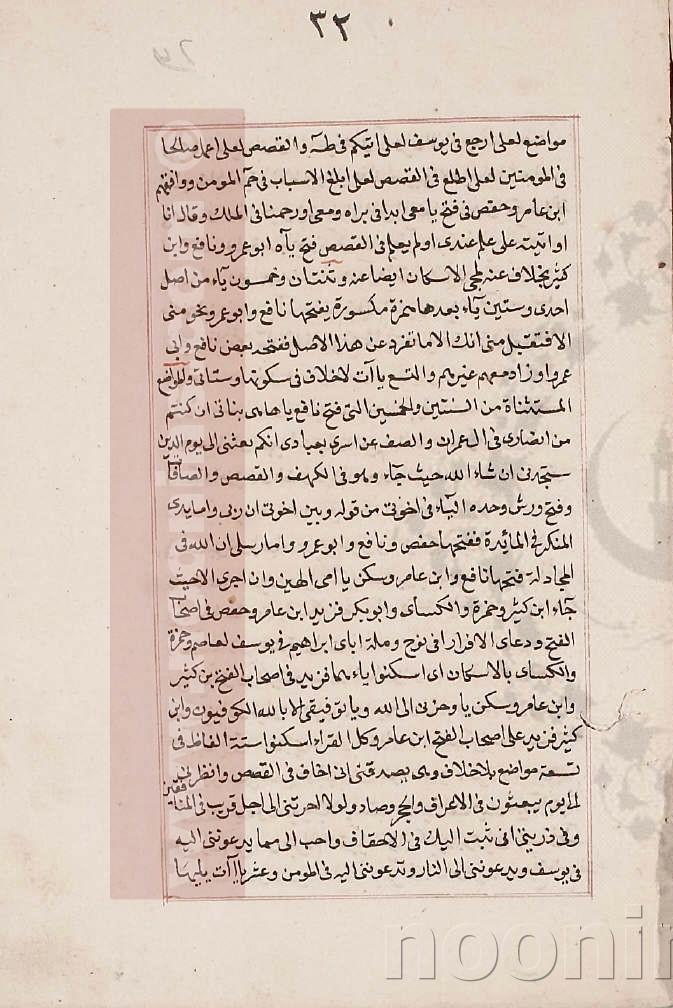 ٣٢
مواضع لعلى ارجع فى يوسف لعلى اتيكم فى طه والقصص لعلى اعمل صالحا
فى المومنين لعلى اطلع فى القصص لعلى ابلغ الاسباب فى حم المومن ووافقهم
ابن عامر وحفص فى فتح يا معى ابدا فى براه ومعى اورحمنا فى الملك وقال انا
اوتيته على علم عندى اولم يعلم فى القصص فتح يآه ابو عمرو ونافع وابن
كثير بخلاف عنه لمجئ الاسكان ايضا عنه وثنتان وخمسون يآء من اصل
احدى وستين يآء بعدها همزة مكسورة يفتحها نافع وابو عمرو نحو منى
الا فتقبل منى انك الا ما تفرد عن هذا الاصل ففتحه بعض نافع وابى
عمرو او زاد معهم غيرهم والتسع ياآت لاخلاف فى سكونها وستاتى والمواضع
المستثناة من الستين والخمسين التى فتح نافع ياها هى بناتى ان كنتم
من انصارى فى ال عمران والصف عن اسرى بعبادى انكم بعثنى الى يوم الدين
ستجدنى ان شاء الله حيث جآء وهو فى الكهف والقصص والصافات
وفتح ورش وحده اليآء فى اخوتى من قوله وبين اخوتى ان ربى واما يدى
المنكر فى المائدة ففتحها حفص ونافع وابو عمرو واما رسلى ان الله فى
المجادلة فتحها نافع وابن عامر وسكن يا امى الهين وان اجرى الا حيث
جآء ابن كثير وحمزة والكسآى وابو بكر فزيد ابن عامر وحفص فى اصحاب
الفتح ودعاى الا فرارا فى نوح وملة اباى ابراهيم فى يوسف لعاصم وحمزة
والكساى بالاسكان اى اسكنوا ياء هما فزيد فى اصحاب الفتح بن كثير
وابن عامر وسكن يا وحزنى الى الله ويا توفيقى الا بالله الكوفيون وابن
كثير فزيد على اصحاب الفتح ابن عامر وكل القراء اسكنوا ستة الفاظ فى
تسعة مواضع بلا خلاف وهى يصدقنى انى اخاف فى القصص وانظرنى
الى يوم يبعثون فى الاعراف والحجر وصاد ولولا اخرتنى الى اجل قريب فى المنافقين
وفى ذريتى انى تبت اليك فى الاحقاف واحب الى مما يدعوننى اليه
فى يوسف وتدعوننى الى النار وتدعوننى اليه فى المومن وعشر ياآت يليها
noonir